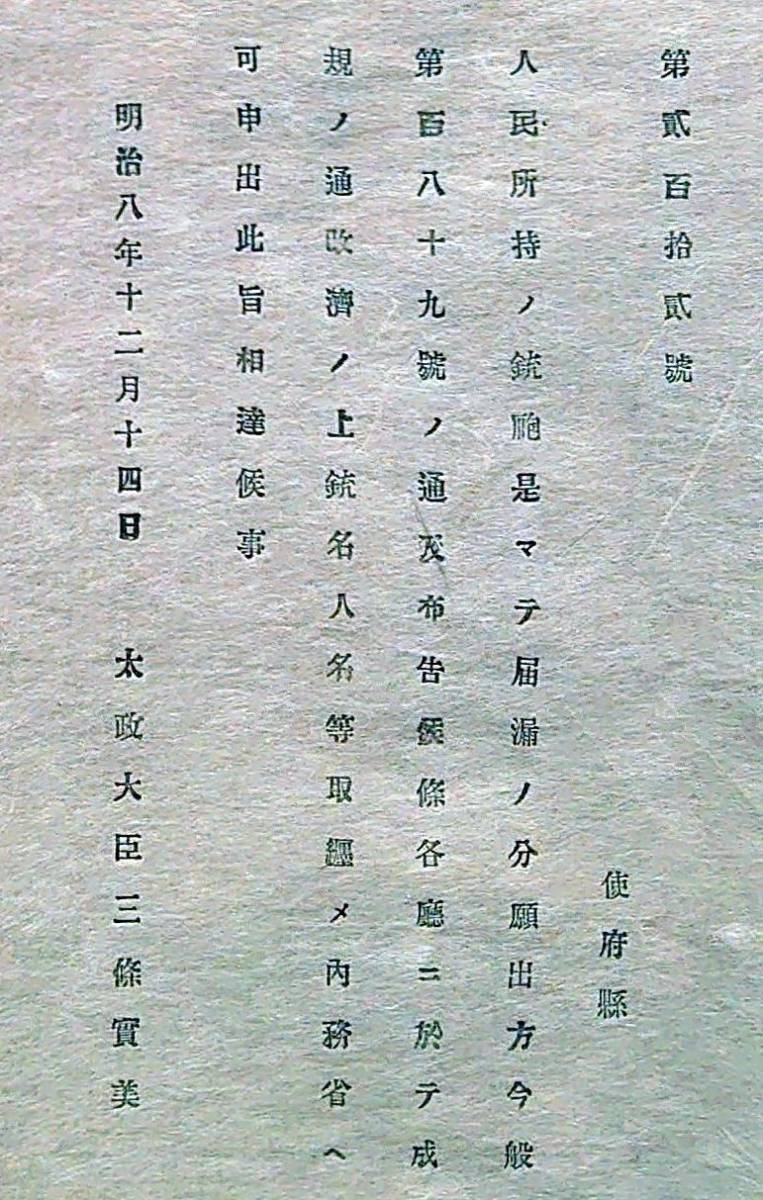 第貳百拾貳號
使府縣
人民所持ノ銃砲是マテ届漏ノ分願出方今般
第百八十九號ノ通及布告候條各廳ニ於テ成
規ノ通改濟ノ上銃名人名等取纒メ內務省ヘ
可申出此旨相達候事
明治八年十二月十四日 太政大臣三條實美